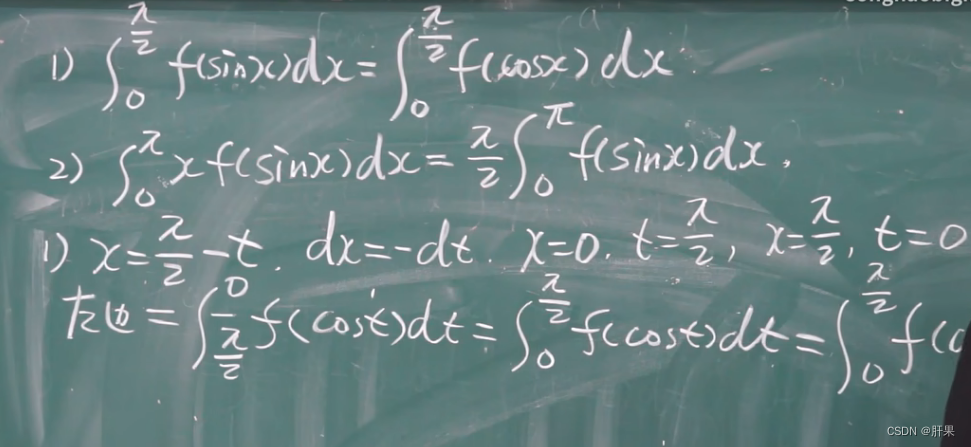 1) ∫₀^{π/2} f(sinx)dx = ∫₀^{π/2} f(cosx)dx
2) ∫₀^π x f(sinx)dx = π/2 ∫₀^π f(sinx)dx.
1) x = π/2 - t. dx = -dt. x=0. t=π/2, x=π/2, t=0
左边 = ∫_{π/2}^0 f(cost)dt = ∫₀^{π/2} f(cost)dt = ∫₀^{π/2} f(c
CSDN @肝果